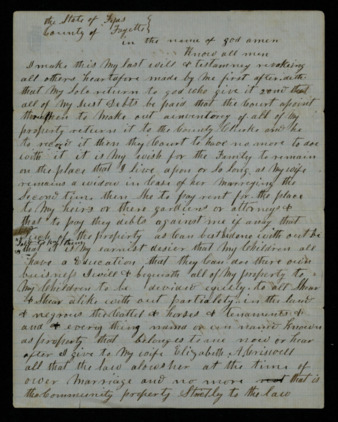 the State of Texas
County of Fayette
in the name of god amen
Know all men
I make this My last will & testamney revoking
all others heartofore made by Me first after deth
that My Sole return to god who give it
all of My Just Debts be paid that the Court apoint
three men to Make out an inventory of all of My
property return it to the County Clerk and he
to record it then they Court to have no more to doe
with it it is My wish for the Family to remain
on the place that I live apon or So long as My wife
remains a widow in case of her Marrying the
Second time then She to pay rent for the place
to My heirs or there gardiens or atorneys &
that to pay they debts against me if any that
Such of the property as Can best be done with out be
that it is My earnest desier that My Children all
have a Education that they Can doe there own
buisness I will & bequeate all of My property to
My Children to be devided equely to all Shear
& Shear alike with out partiality in the land
& negroes & horses & tenaments &
and & every thing named or un named Known
as property that belonges to me now or hear
after I give to My wife Elizabeth A. Criswell
all that the law alows her at the time of
over Marriage and no more that is
the Community property Strictly to the law